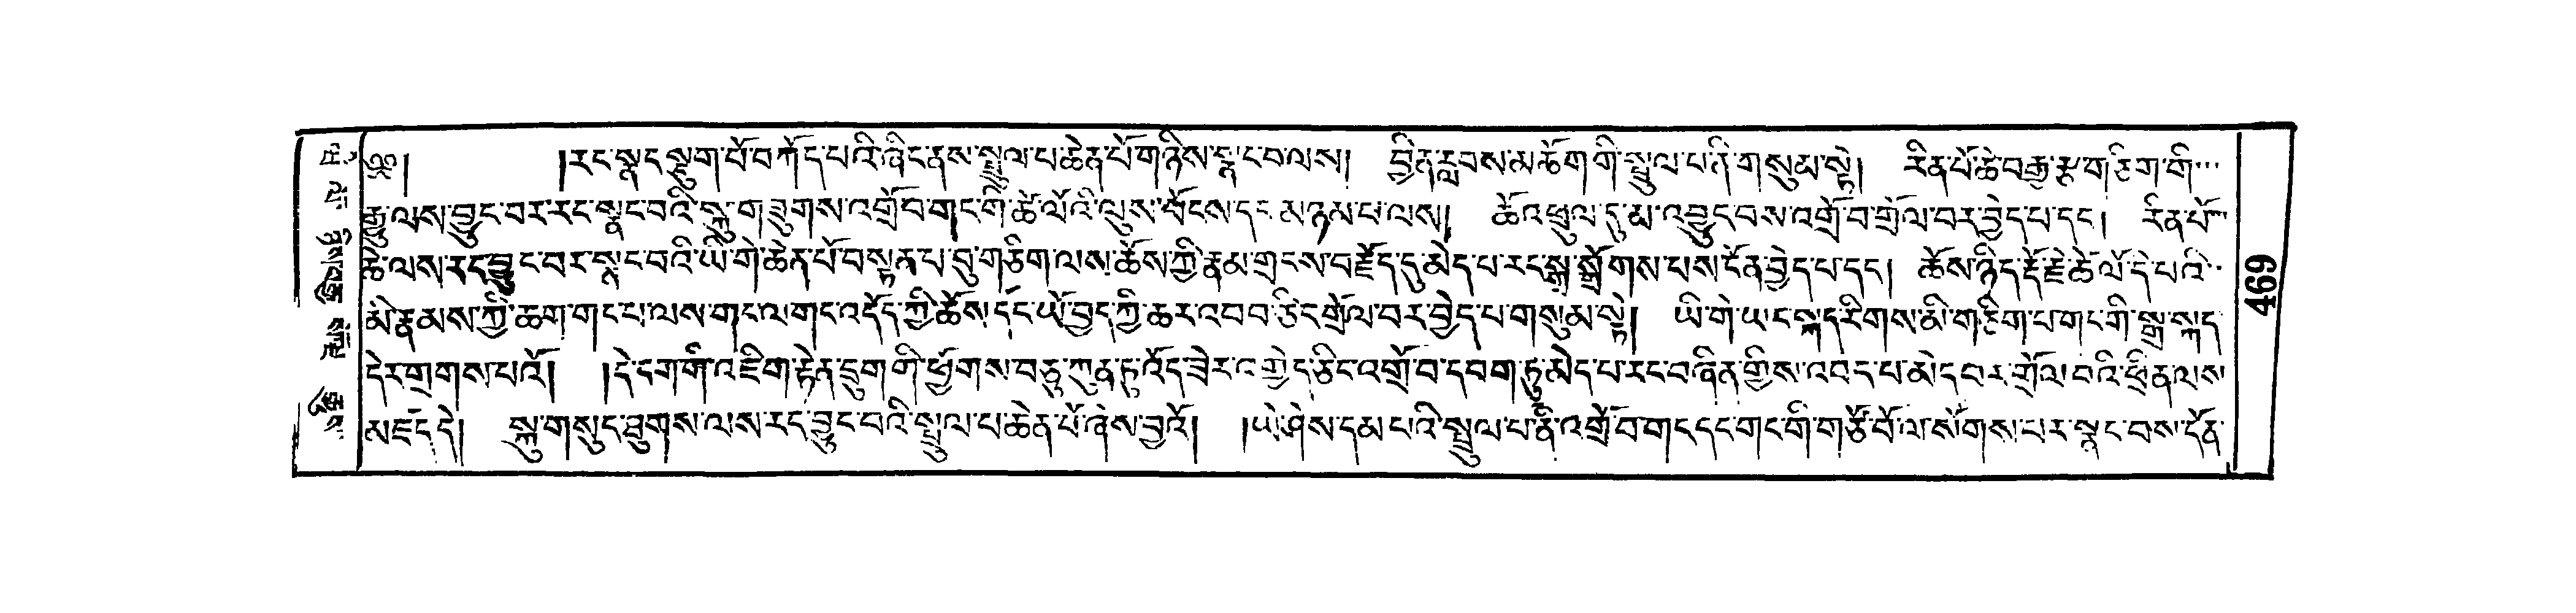 ༄༅། །རང་སྣང་སྟུག་པོ་བཀོད་པའི་ཞིང་ནས་སྤྲུལ་པ་ཆེན་པོ་གཉིས་སྣང་བ་ལས། བྱིན་རླབས་མཆོག་གི་སྤྲུལ་པ་ནི་གསུམ་སྟེ། རིན་པོ་ཆེ་བརྒྱ་རྩ་གཅིག་གི་
རྒྱུ་ལས་བྱུང་བར་རང་སྣང་བའི་སྐུ་གཟུགས་འགྲོ་བ་གང་གི་ཚེ་ལོའི་ལུས་བོངས་དང་མཉམ་པ་ལས། ཆོ་འཕྲུལ་དུ་མ་འབྱུང་བས་འགྲོ་བ་གྲོལ་བར་བྱེད་པ་དང་། རིན་པོ་
ཆེ་ལས་རང་བྱུང་བར་སྣང་བའི་ཡི་གེ་ཆེན་པོ་བསྟན་པ་བུ་གཅིག་ལས་ཆོས་ཀྱི་རྣམ་གྲངས་བརྗོད་དུ་མེད་པ་རང་སྒྲ་སྒྲོགས་པས་དོན་བྱེད་པ་དང་། ཆོས་ཉིད་རྡོ་རྗེ་ཚེ་ལོ་དེ་པའི་
མི་རྣམས་ཀྱི་ཆག་གང་པ་ལས་གང་ལ་གང་འདོད་ཀྱི་ཆོས་དང་ཡོ་བྱད་ཀྱི་ཆར་འབབ་ཅིང་གྲོལ་བར་བྱེད་པ་གསུམ་སྟེ། ཡི་གེ་ཡང་སྐད་རིགས་མི་གཅིག་པ་གང་གི་སྒྲ་སྐད་
དེར་གྲགས་པའོ། །དེ་དག་གི་འཇིག་རྟེན་དྲུག་གི་ཕྱོགས་བཅུ་ཀུན་ཏུ་འོད་ཟེར་འགྱེད་ཅིང་འགྲོ་བ་དཔག་ཏུ་མེད་པ་རང་བཞིན་གྱིས་འབད་པ་མེད་པར་གྲོལ་བའི་ཕྲིན་ལས་
མཛད་དེ། སྐུ་གསུང་ཐུགས་ལས་རང་བྱུང་བའི་སྤྲུལ་པ་ཆེན་པོ་ཞེས་བྱའོ། །ཡེ་ཤེས་དམ་པའི་སྤྲུལ་པ་ནི་འགྲོ་བ་གང་དང་གང་གི་གཙོ་བོ་ལ་སོགས་པར་སྣང་བས་དོན་
469